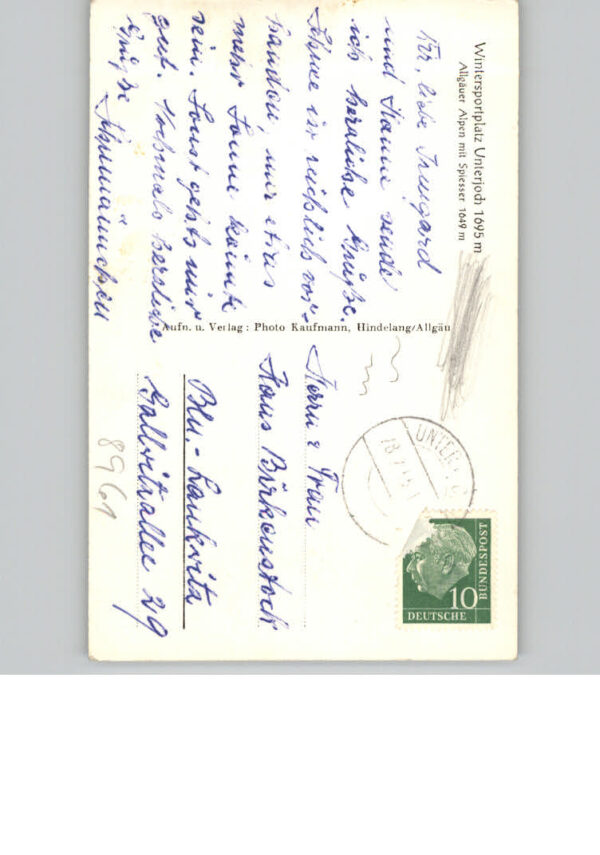 Wintersportplatz Unterjoch 1695 m
Allgäuer Alpen mit Spiesser 1649 m
Dir, liebe Irmgard
und Hanne sende
ich herzliche Grüße.
Schnee ist reichlich vor-
handen, nur etwas
mehr Sonne könnte
sein. Sonst geht's mir
gut. Nochmals herzliche
Grüße
Aufn. u. Verlag: Photo Kaufmann, Hindelang/Allgäu
Herrn & Frau
Hans Birkenstock
Bln.-Lankwitz
Gallwitzallee 29
8961
UNTER
DEUTSCHE
BUNDESPOST
10